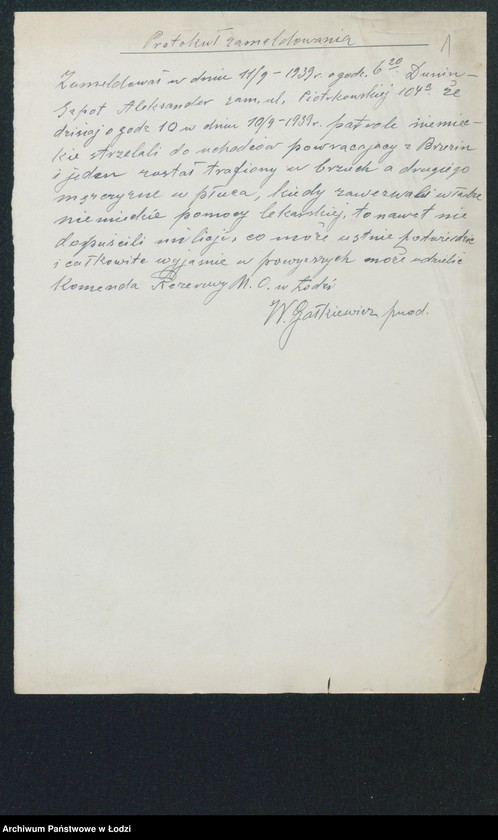 Protokuł zameldowania
1
Zameldował w dniu 11/9-1939r. o godz. 6²⁰ Dunin-
Szpot Aleksander zam. ul. Piotrkowskiej 104ª że
dzisiaj o godz 10 w dniu 10/9-1939r. patrole niemiec-
kie strzelali do uchodców powracający z Brzezin
i jeden zastał trafiony w brzuch a drugiego
męszczyzne w płuca, kiedy zawezwali władze
niemieckie pomocy lekarskiej, to nawet nie
dopuścili milicje, co może ustnie podwierdzić
i całkowite wyjaśnie w powyszych może udzielić
Komenda Rezerwy M. O. w Łodzi
W. Gałkiewicz
Archiwum Państwowe w Łodzi